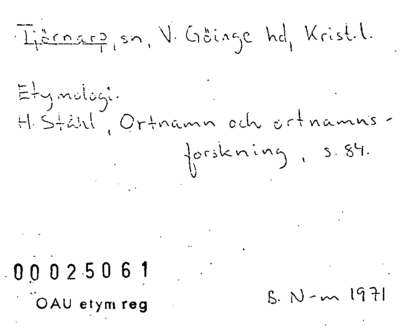 Tjörnarp, sn, V. Göinge hd, Krist.l.
Etymologi.
H. Ståhl, Ortnamn och ortnamns-
forskning, s. 84.
00025061
OAU etym reg
B. N-m 1971